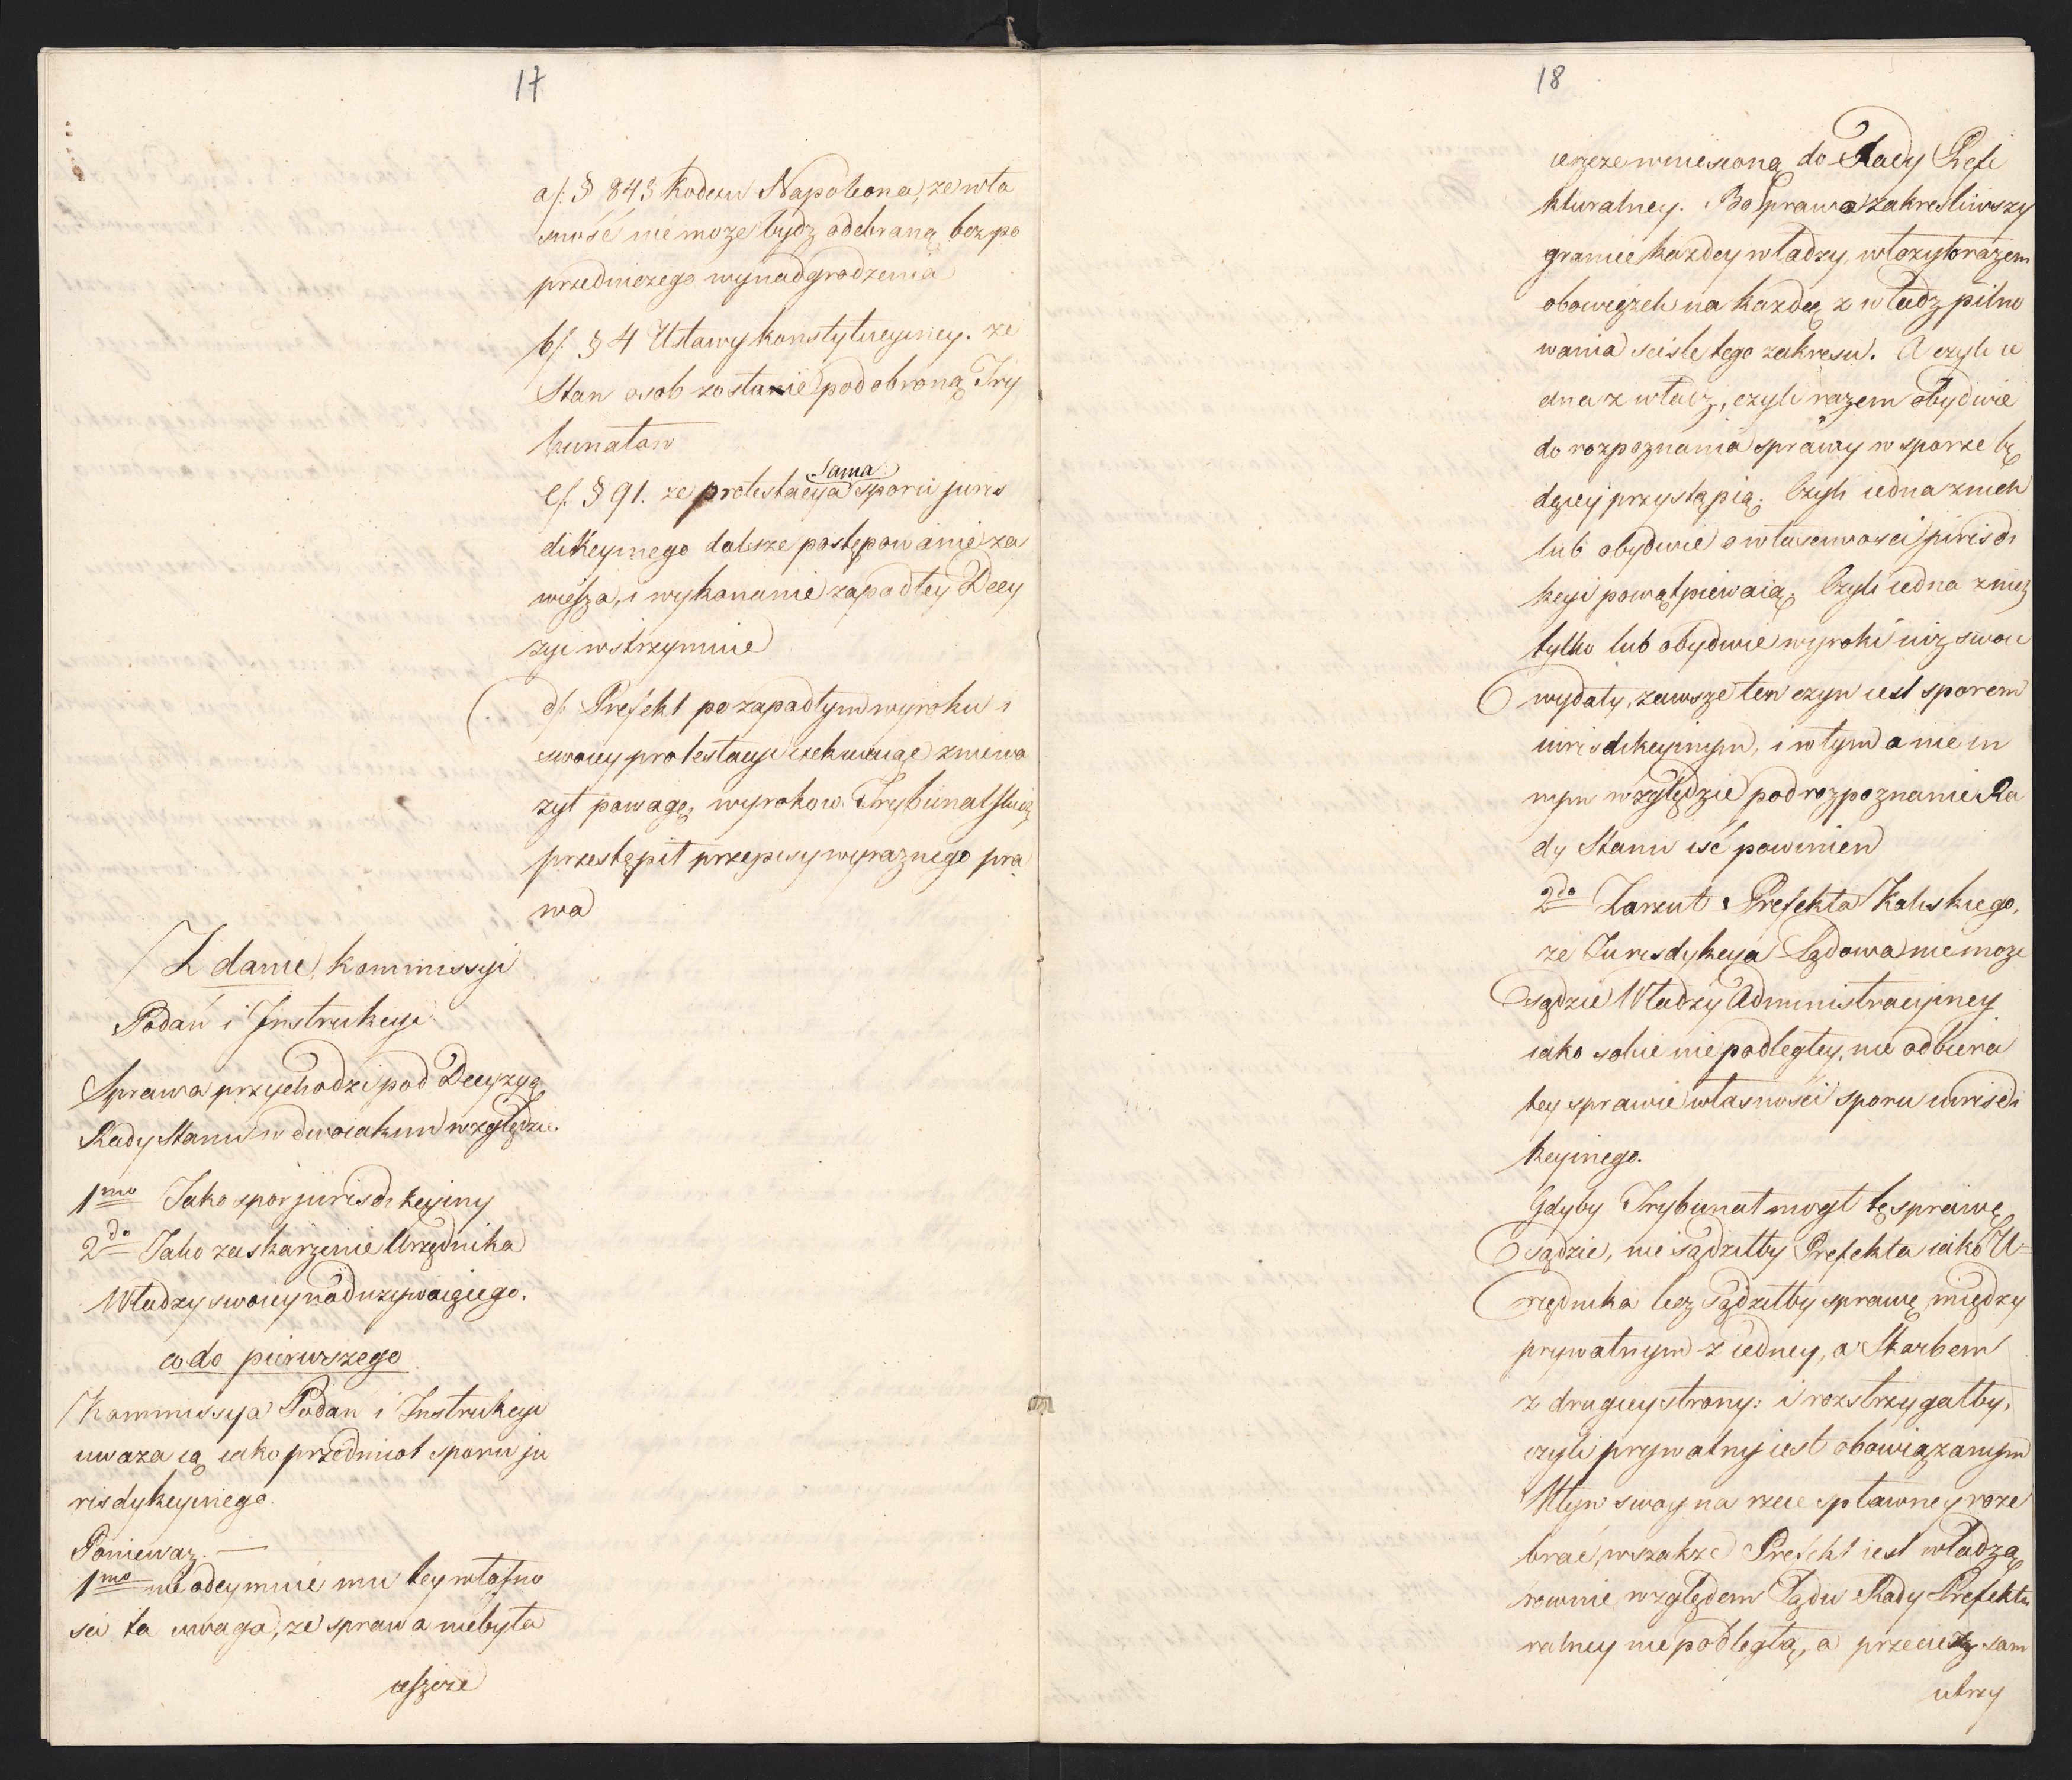 17
a/. § 843 Kodexu Napoleona, ze wła
sność nie może bydz odebraną bez po
przedniczego wynadgrodzenia
b/. § 4 Ustawy konstytucyiney. ze
Stan osob zostanie pod obroną Try
bunałow
c/. § 91. ze protestacya sama sporu juris
dikcyinego dalsze postępowanie za
wiesza, i wykonanie zapadłey Decy
zyi wstrzymuie
d/. Prefekt po zapadłym wyroku i
swoiey protestacyi exekwuiąc zniewa
żył powagę, wyrokow Trybunalskich
przestąpił przepisy wyraznego pra
wa
Zdanie, Kommissyi
Podań i Instrukcyi
Sprawa przychodzi pod Decyzyą
Rady Stanu w dwoiakim względzie.
1mo Jako spor jurisdikcyiny
2do Jako zaskarzenie Urzędnika
Władzy swoiey nadużywaiącego.
co do pierwszego
Kommissya Podań i Instrukcyi
uważa ią iako przedmiot sporu ju
risdykcyinego.
Ponieważ. —
1mo nie odeymuie mu tey własno
sci ta uwaga, ze sprawa niebyła
ieszcze
18
ieszcze wniesioną do Rady Prefe
kturalney. Bo prawo zakresliwszy
granice każdey władzy, włożyło razem
obowiązek na każdą z władz pilno
wania scisle tego zakresu. A czyli ie
dna z władz, czyli razem obydwie
do rozpoznania sprawy w sporze bę
dącey przystąpią; Czyli iedna z nich
lub obydwie o własciwosci jurisdi
kcyi powątpiewaią; Czyli iedna z nich
tylko lub obydwie wyroki iuż swoie
wydały, zawsze ten czyn iest sporem
iurisdikcyinym, i w tym a nie in
nym względzie pod rozpoznanie Ra
dy Stanu iść powinien
2do Zarzut Prefekta Kaliskiego,
ze Jurisdykcya Sądowa nie może
sądzić Władzy Administracyiney
iako sobie nie podległey, nie odbiera
tey sprawie własności sporu iurisdi
kcyinego.
Gdyby Trybunał mogł tę sprawę
sądzić, nie sądziłby Prefekta iako U=
rzędnika lecz sądziłby sprawę między
prywatnym z iedney, a Skarbem
z drugiey strony: i rozstrzygałby,
czyli prywatny iest obowiązanym
Młyn swoy na rzece spławney roze
brać, wszakże Prefekt iest władzą
rownie względem Sądu Rady Prefektu
ralney nie podległą, a przecież sam
utrzy